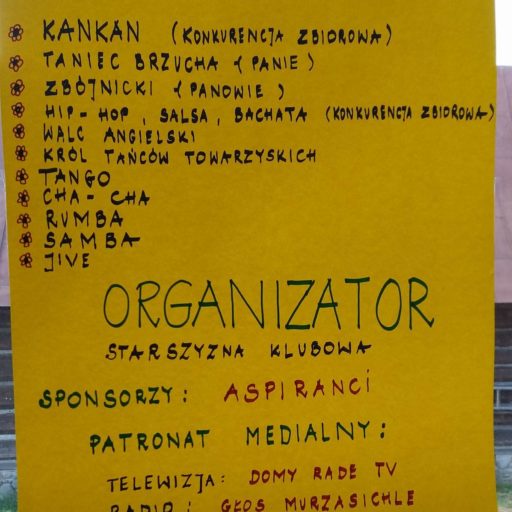 KANKAN (KONKURENCJA ZBIOROWA)
TANIEC BRZUCHA (PANIE)
ZBÓJNICKI (PANOWIE)
HIP-HOP, SALSA, BACHATA (KONKURENCJA ZBIOROWA)
WALC ANGIELSKI
KRÓL TAŃCÓW TOWARZYSKICH
TANGO
CHA-CHA
RUMBA
SAMBA
JIVE
ORGANIZATOR
STARSZYZNA KLUBOWA
SPONSORZY: ASPIRANCI
PATRONAT MEDIALNY:
TELEWIZJA: DOMY RADE TV
RADIO: GŁOS MURZASICHLE